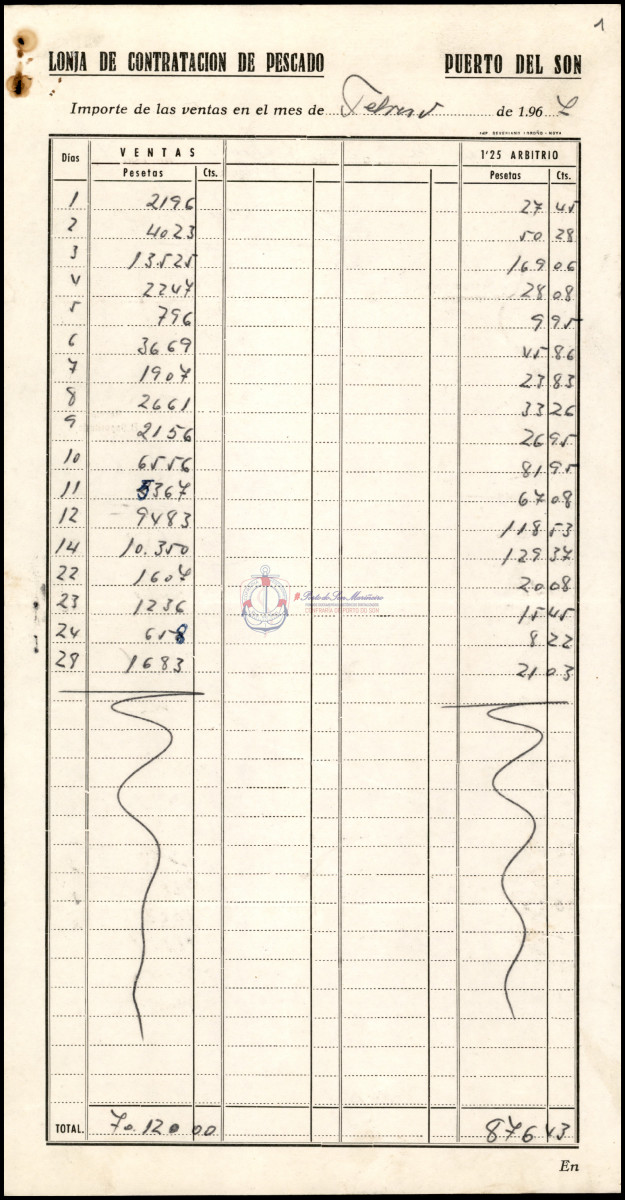 1
LONJA DE CONTRATACION DE PESCADO PUERTO DEL SON
Importe de las ventas en el mes de Febrero de 1.967
Días VENTAS 1'25 ARBITRIO
Pesetas Cts. Pesetas Cts.
1 2196 27 45
2 4023 50 28
3 13.525 169 06
4 2247 28 08
5 796 9 95
6 3669 45 86
7 1907 23 83
8 2661 33 26
9 2156 26 95
10 6556 81 95
11 5367 67 08
12 9483 118 53
14 10.350 129 37
22 1607 20 08
23 1236 15 45
24 658 8 22
28 1683 21 03
Porto do Son Mariñeiro
CONFRARÍA DE PORTO DO SON
TOTAL. 70.120 00 876 43
En